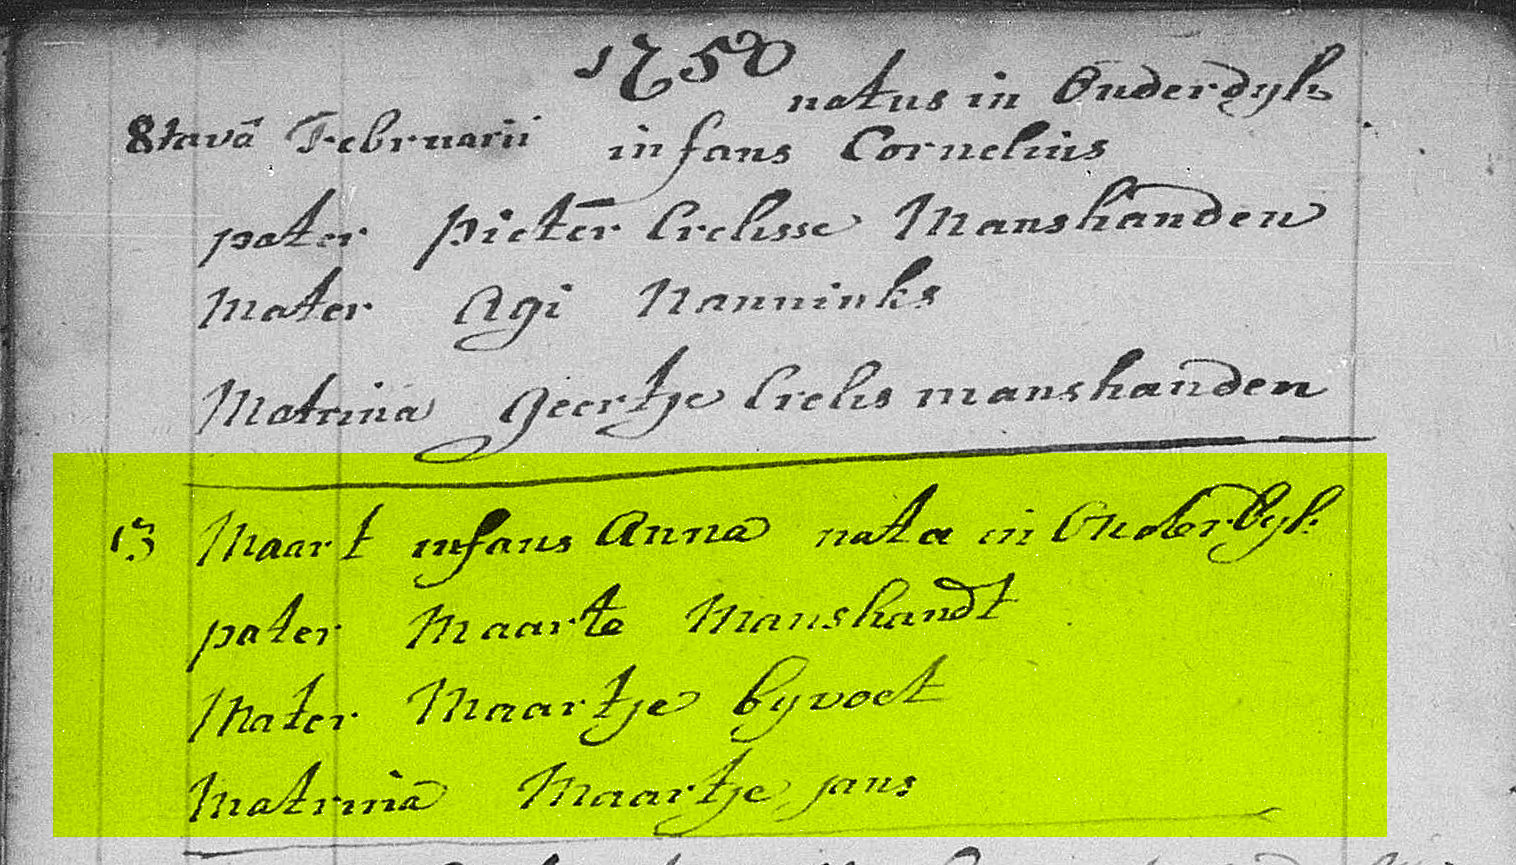 1750
natus in Onderdyk
8tavâ Februarii infans Cornelius
pater Pieter Crelisse Manshanden
Mater Agi Nanninks
Matrina Geertje Crelis manshanden
13 Maart infans Anna nata in Onderdyk
pater Maarte Manshandt
Mater Maartje byvoet
Matrina Maartje jans